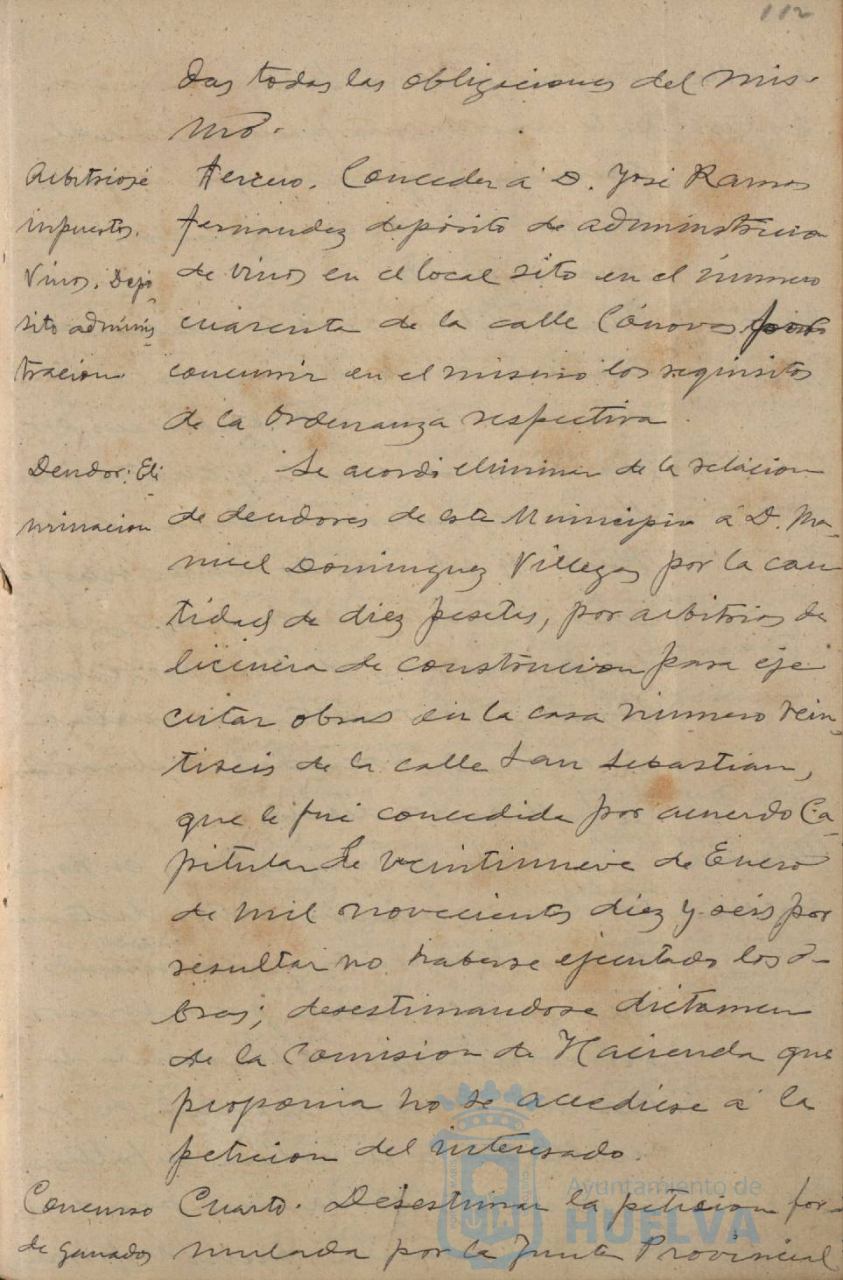 112
das todas las obligaciones del mis-
mo.
Arbitrios é
impuestos.
Vinos. Depó-
sito adminis-
tracion.
Tercero. Conceder á D. José Ramos
Fernandez depósito de administracion
de vinos en el local sito en el número
cuarenta de la calle Cánovas por
concurrir en el mismo los requisitos
de la Ordenanza respectiva.
Deudor: Eli
minacion
Se acordó eliminar de la relacion
de deudores de este Municipio á D. Ma-
nuel Dominguez Villegas por la can
tidad de diez pesetas, por arbitrios de
licencia de construccion para eje
cutar obras en la casa número vein-
tiseis de la calle San Sebastian,
que le fué concedida por acuerdo Ca-
pitular de veintinueve de Enero
de mil novecientos diez y seis por
resultar no haberse ejecutado los o-
bras; desestimandose dictamen
de la Comision de Hacienda que
proponia no se accediese á la
peticion del interesado.
Concurso
de ganados
Cuarto. Desestimar la peticion for-
mulada por la Junta Provincial
Ayuntamiento de
HUELVA